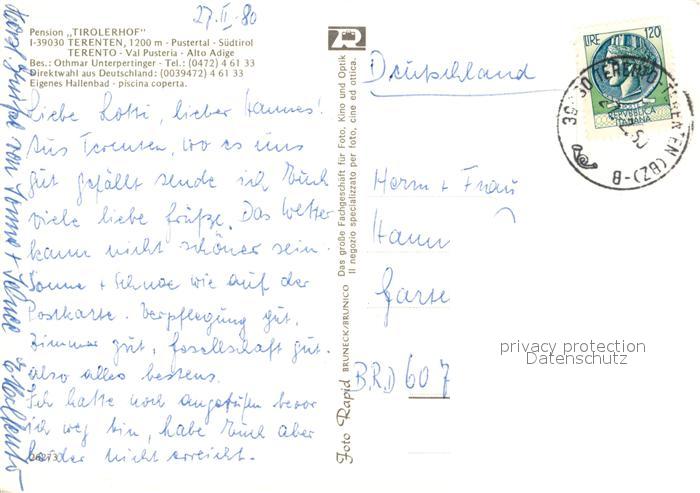 27.II.80
Pension „TIROLERHOF"
I-39030 TERENTEN, 1200 m - Pustertal - Südtirol
TERENTO - Val Pusteria - Alto Adige
Bes.: Othmar Unterpertinger - Tel.: (0472) 4 61 33
Direktwahl aus Deutschland: (0039472) 4 61 33
Eigenes Hallenbad - piscina coperta.
Liebe Lotti, lieber Hannes!
Aus Terenten, wo es uns
gut gefällt sende ich Euch
viele liebe Grüße. Das Wetter
kann nicht schöner sein.
Sonne + Schnee wie auf der
Postkarte. Verpflegung gut,
Zimmer gut, Gesellschaft gut.
also alles bestens.
Ich hatte noch angerufen bevor
ich weg bin, habe Euch aber
leider nicht erreicht.
Herzl. Grüße von Sonne + Schnee
Foto Rapid BRUNECK/BRUNICO Das große Fachgeschäft für Foto, Kino und Optik
Il negozio specializzato per foto, cine ed ottica.
Deutschland
LIRE 120
REPVBBLICA
ITALIANA
TERENTO-TERENTEN (BZ)-B
Herrn + Frau
Hann
Garse
BRD 607
privacy protection
Datenschutz